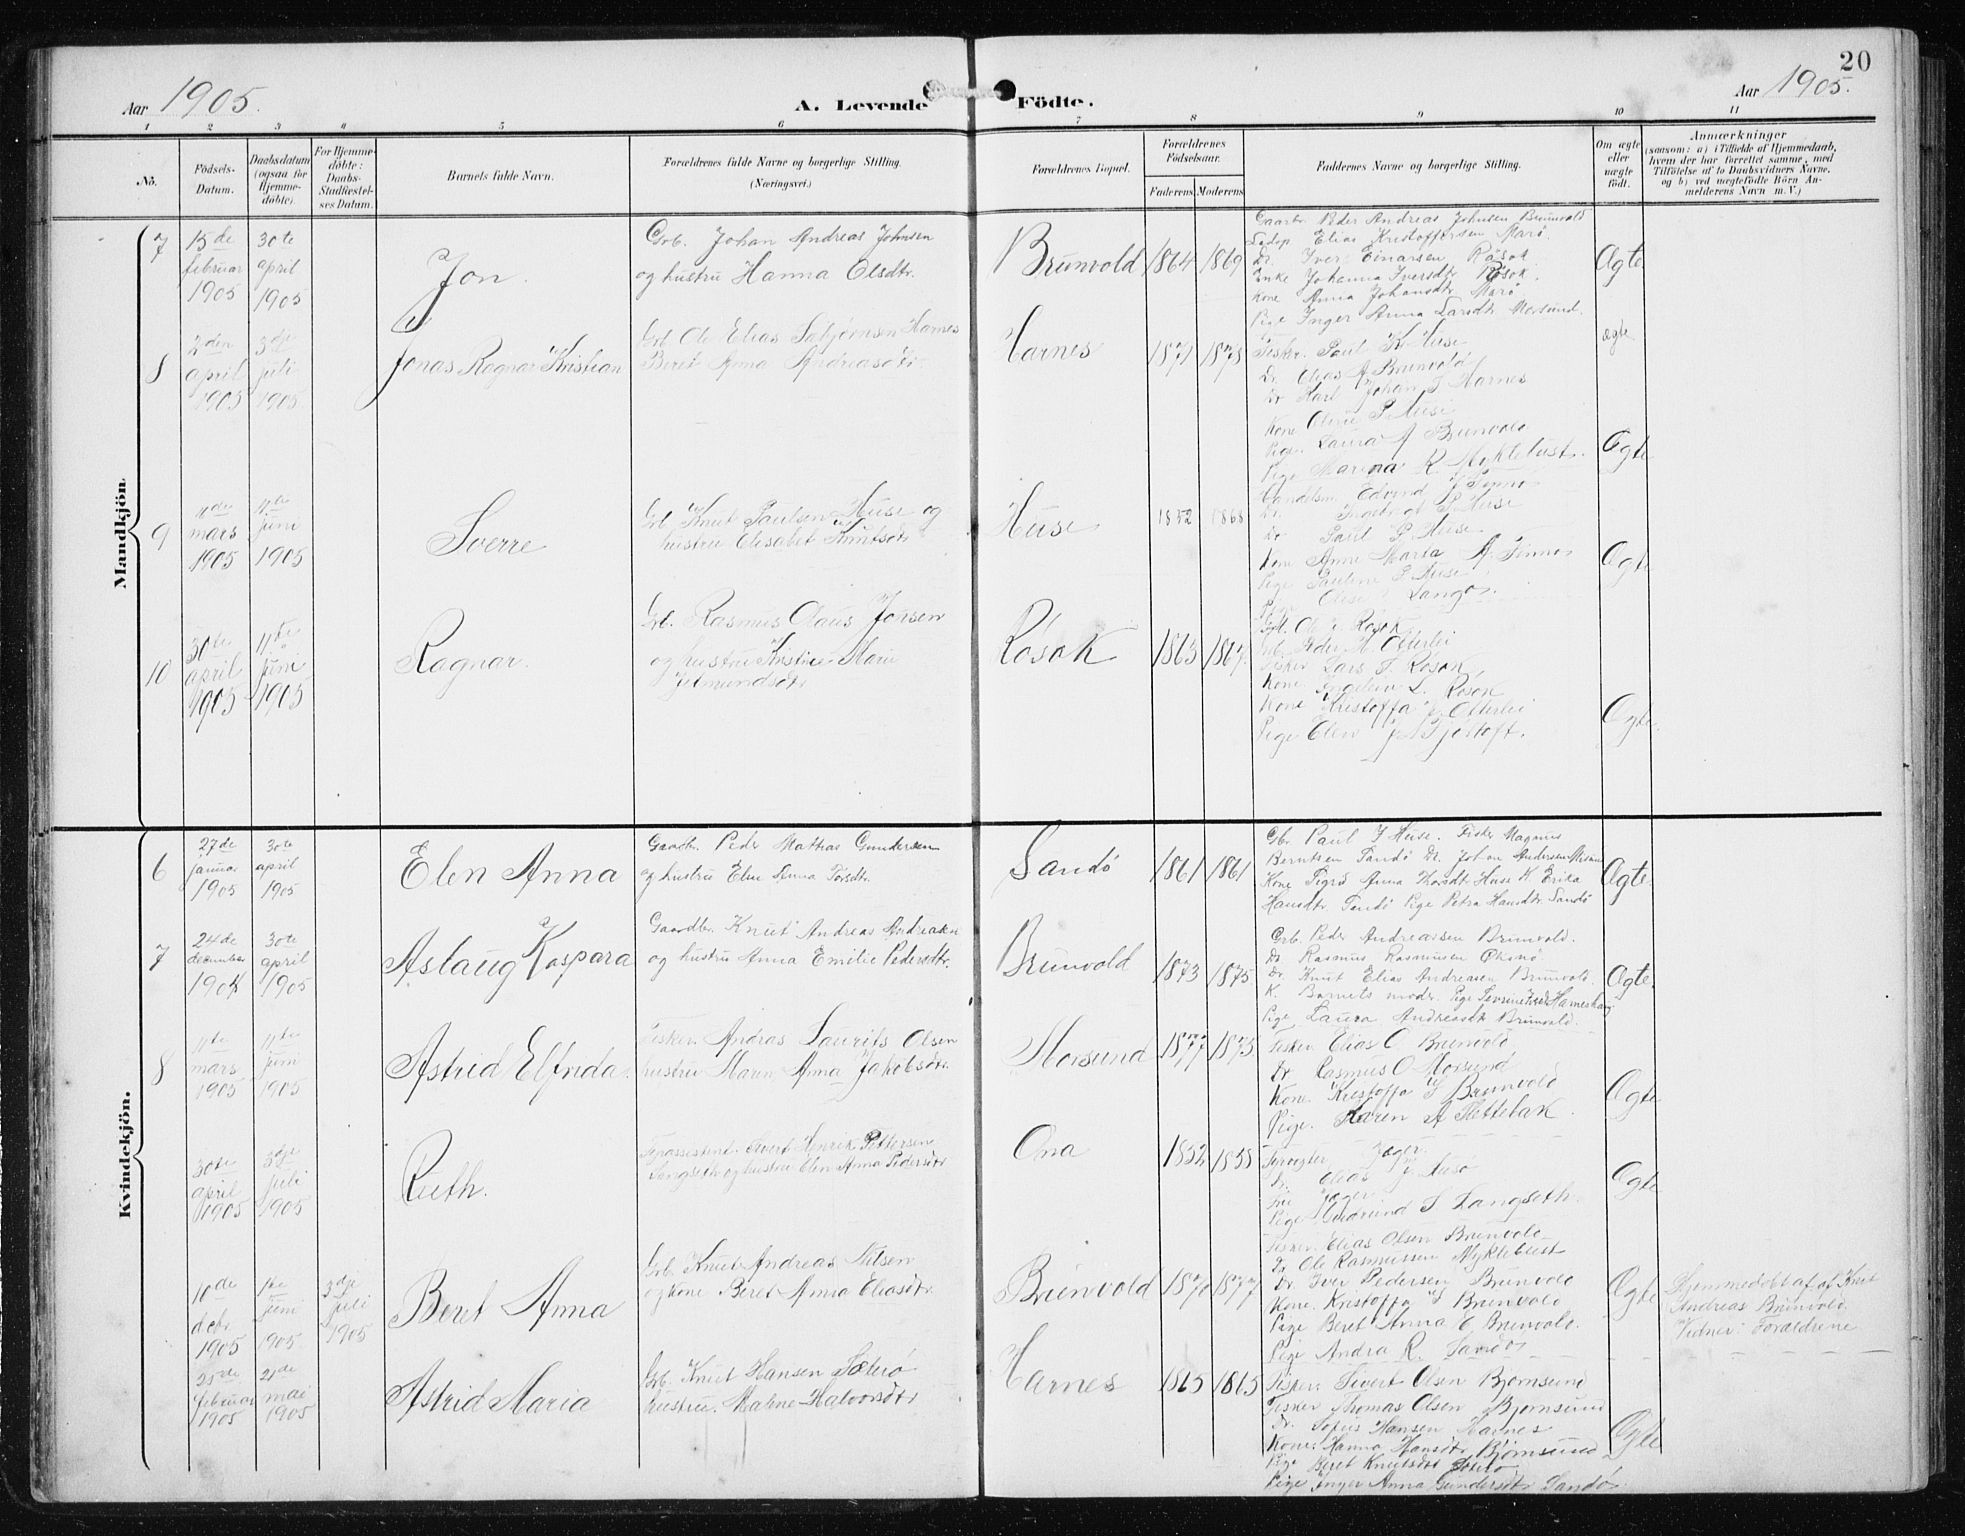 20
Aar 1905.
A. Levende Födte.
Aar 1905.
1 2 3 4 5 6 7 8 9 10 11
No.
Födsels-Datum.
Daabsdatum (ogsaa for Hjemme-døbte).
For Hjemme-døbte: Daabs-Stadfæstel-ses Datum.
Barnets fulde Navn.
Forældrenes fulde Navne og borgerlige Stilling.
(Næringsvei.)
Forældrenes Bopæl.
Forældrenes Födselsaar.
Faderens Moderens
Faddernes Navne og borgerlige Stilling.
Om ægte eller uægte födt.
Anmærkninger
(saasom: a) i Tilfælde af Hjemmedaab, hvem der har forrettet samme, med Tilföielse af to Daabsvidners Navne, og b) ved uægtefödte Börn An-melderens Navn m. V.)
Mandkjön.
7
15de februar 1905
30te april 1905
Jon.
Grb. Johan Andreas Johnsen
og hustru Hanna Olsdtr.
Brunvold
1864 1869
Gaarbr Peder Andreas Johnsen Brunvold
Elias Kristoffersen Marø.
Dr. Iver Einarsen Røsok
Enke Johanna Iversdtr Røsok
Kone Anna Johansdtr. Marø
Pige Inger Anna Larsdtr Morsund.
Ægte
8
2den april 1905
3dje juli 1905
Jonas Ragnar Kristian
Grb Ole Elias Harnes
Beret Anna Andreasdtr.
Harnes
1871 1878
Fisker. Paul K. Huse
Dr. Elias A Brunvold
Dr Karl Johan T Harnes
Kone Oline P. Huse
Pige. Laura A Brunvold
Pige Marina K Myklebust.
ægte
Ægte
9
11de mars 1905
11te juni 1905
Sverre
Grb. Knut Paulsen Huse og
hustru Elisabet Knutsdtr
Huse
1852 1868
Edvind
P Huse
Dr Paul P. Huse
Kone Anne Marta A.
Pige Pauline P. Huse
Pige
Ægte
10
30te april 1905
11te juni 1905
Ragnar.
Grb. Rasmus Olaus Jonsen
og hustru Kristine Marie
Røsok
1865 1867
Ole Røsok
Grb. Peder M. Otterlei
Fisker Lars T. Røsok
Kone L. Røsok
Kone Kristoffa Otterlei
Pige Elen Fjørtoft.
Ægte.
Kvindekjön.
6
27de januar 1905
30te april 1905
Elen Anna
Gaardb. Peder Mathias Gundersen
og hustru Elen Anna
Sandø
1861 1861
Grb Paul J Huse. Fisker Magnus
Berntsen Sandø Dr. Johan Andersen
Kone Sigrid Anna Huse K Erika
Hansdtr. Sandø Pige Petra Hansdtr. Sandø
Ægte.
7
24de december 1904
30te april 1905
Aslaug Kaspara
Gaardbr. Knut Andreas Andreasen
og hustru Anna Emilie Pedersdtr.
Brunvold
1873 1875
Grb. Peder Andreassen Brunvold.
Do Rasmus Rasmussen
Dr. Knut Elias Andreasen Brunvold
K. Barnets moder. Pige
Pige Laura Andreasdtr Brunvold.
Ægte.
8
11te mars 1905
11te juni 1905
Astrid Elfrida.
Fisker. Andras Laurits Olsen
hustru Anna Jakobsdtr.
Morsund
1877 1875
Fisker Elias O Brunvold
Dr Rasmus O Morsund
Kone. Kristoffa S Brunvold
Pige. Karen A Slettebak.
Ægte
30te april 1905
3dje juli 1905
Ruth.
Sivert Henrik Pettersen
Langseth og hustru Elen Anna Pedersdtr
Ona
1852 1858
Fyrvogter Jæger
Dr. Elias J. Husø
Fru Jæger
Pige Gudrund S Langseth.
Ægte
10de 1905
1te juni 1905.
3dje juli 1905
Beret Anna
Grb. Knut Andreas Nilsen
og kone Beret Anna Eliasdtr.
Brunvold
1870 1877
Fisker. Elias Olsen Brunvold
Dr. Ole Rasmussen Myklebust
Dr Iver Pedersen Brunvold
Kone. Kristoffa S Brunvold
Pige Beret Anna E Brunvold.
Pige Andra R. Sandø
Ægte
Hjemmedøbt af af Knut
Andreas Brunvold.
Vidner: Forældrene
25de februar 1905
21de mai 1905
Astrid Maria
Grb. Knut Hansen Sæterø
hustru. Malene Halvorsdtr
Harnes
1865 1865
Fisker: Sivert Olsen Bjørnsund
Fisker Thomas Olsen Bjørnsund
Dr. Sofus Hansen Harnes
Kone: Hanna Hansdtr Bjørnsund
Pige Beret Knutsdtr Sæterø
Pige Inger Anna Gundersdtr Sandø.
Ægte